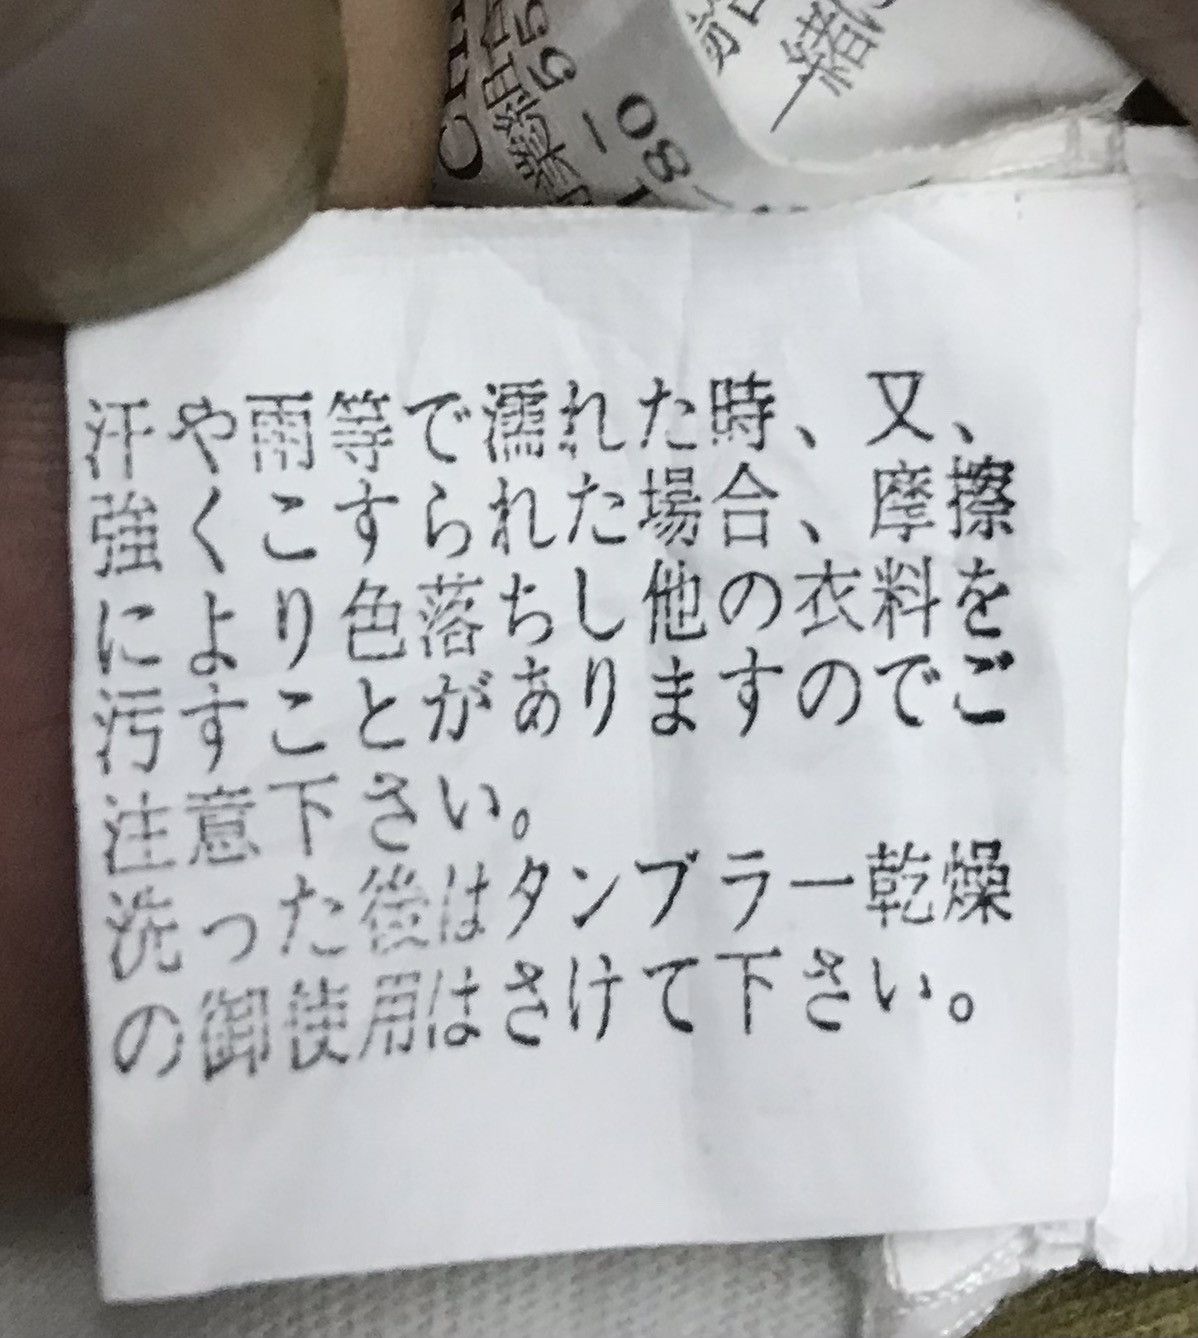 汗や雨等で濡れた時、又、
強くこすられた場合、摩擦
により色落ちし他の衣料を
汚すことがありますのでご
注意下さい。
洗った後はタンブラー乾燥
の御使用はさけて下さい。